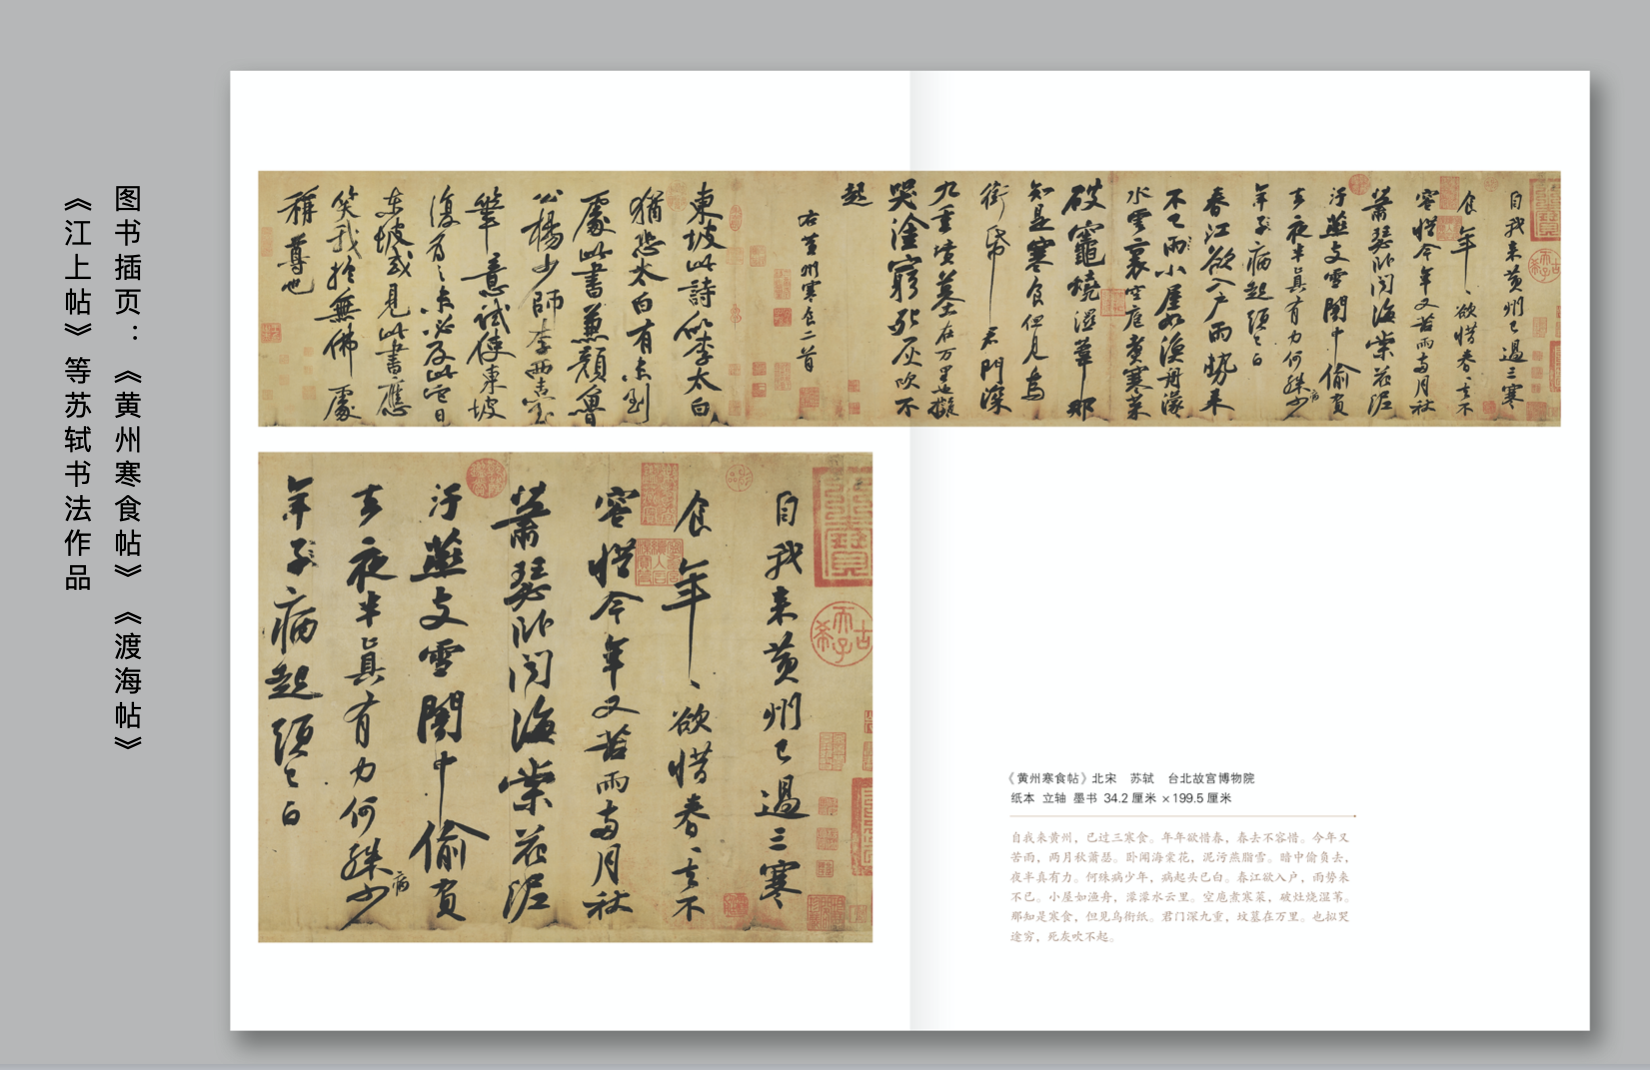 图书插页：《黄州寒食帖》《渡海帖》
《江上帖》等苏轼书法作品
自我来黄州已過三寒
食年〻欲惜春〻去不
容惜今年又苦雨兩月秋
蕭瑟卧聞海棠花泥
汙燕支雪闇中偷負
去夜半真有力何殊少病
年子病起頭已白
春江欲入户雨勢来
不已雨小屋如漁舟濛
水雲裏空庖煮寒菜
破竈燒濕葦那
知是寒食但見烏
銜帋君門深
九重墳墓在万里也擬
哭塗窮死灰吹不
起
右黄州寒食二首
東坡此詩似李太白
猶恐太白有未到
處此書兼顏魯
公楊少師李西臺
筆意試使東坡
復為之未必及此它日
東坡或見此書應
笑我於無佛處
稱尊也
自我来黄州已過三寒
食年〻欲惜春〻去不
容惜今年又苦雨兩月秋
蕭瑟卧聞海棠花泥
汙燕支雪闇中偷負
去夜半真有力何殊少病
年子病起頭已白
《黄州寒食帖》北宋　苏轼　台北故宫博物院
纸本 立轴 墨书 34.2 厘米 ×199.5 厘米
自我来黄州，已过三寒食。年年欲惜春，春去不容惜。今年又
苦雨，两月秋萧瑟。卧闻海棠花，泥污燕脂雪。暗中偷负去，
夜半真有力。何殊病少年，病起头已白。春江欲入户，雨势来
不已。小屋如渔舟，濛濛水云里。空庖煮寒菜，破灶烧湿苇。
那知是寒食，但见乌衔纸。君门深九重，坟墓在万里。也拟哭
途穷，死灰吹不起。